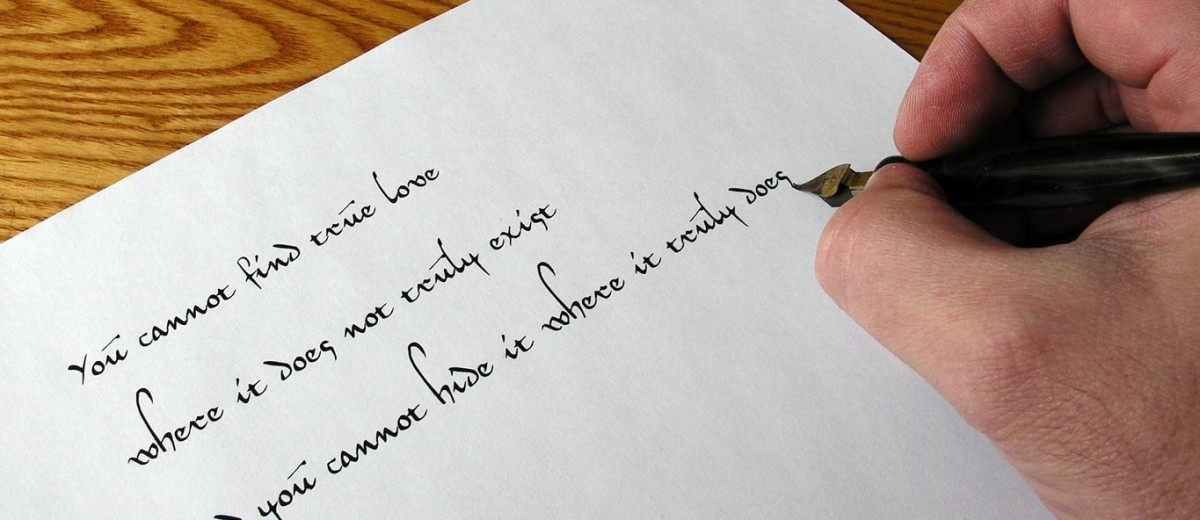 You cannot find true love
where it does not truly exist
you cannot hide it where it truly does